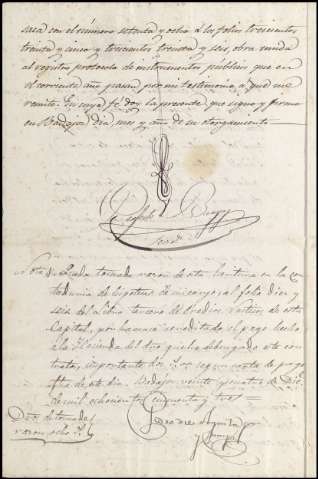 saca con el número setenta y ocho á los folios trescientos
treinta y cinco y trescientos treinta y seis, obra unida
al registro protocolo de instrumentos publicos que en
el corriente año pasan por mi testimonio, á que me
remito. En cuya fé doy la presente, que signo y firmo
en Badajoz dia, mes y año de su otorgamiento.
Nota. Queda tomada razon de esta escritura en la con
taduria de hipotecas de mi cargo, al folio diez y
seis del Libro tercero de predios rusticos de esta
Capital, por haberse acreditado el pago hecho
á la Hacienda del dro que ha debengado este con
trato, importante dos
fha de este dia. Badajoz veinte y cuatro de Dic.
de mil ochocientos cincuenta y tres =
Dros de toma de
razon ocho